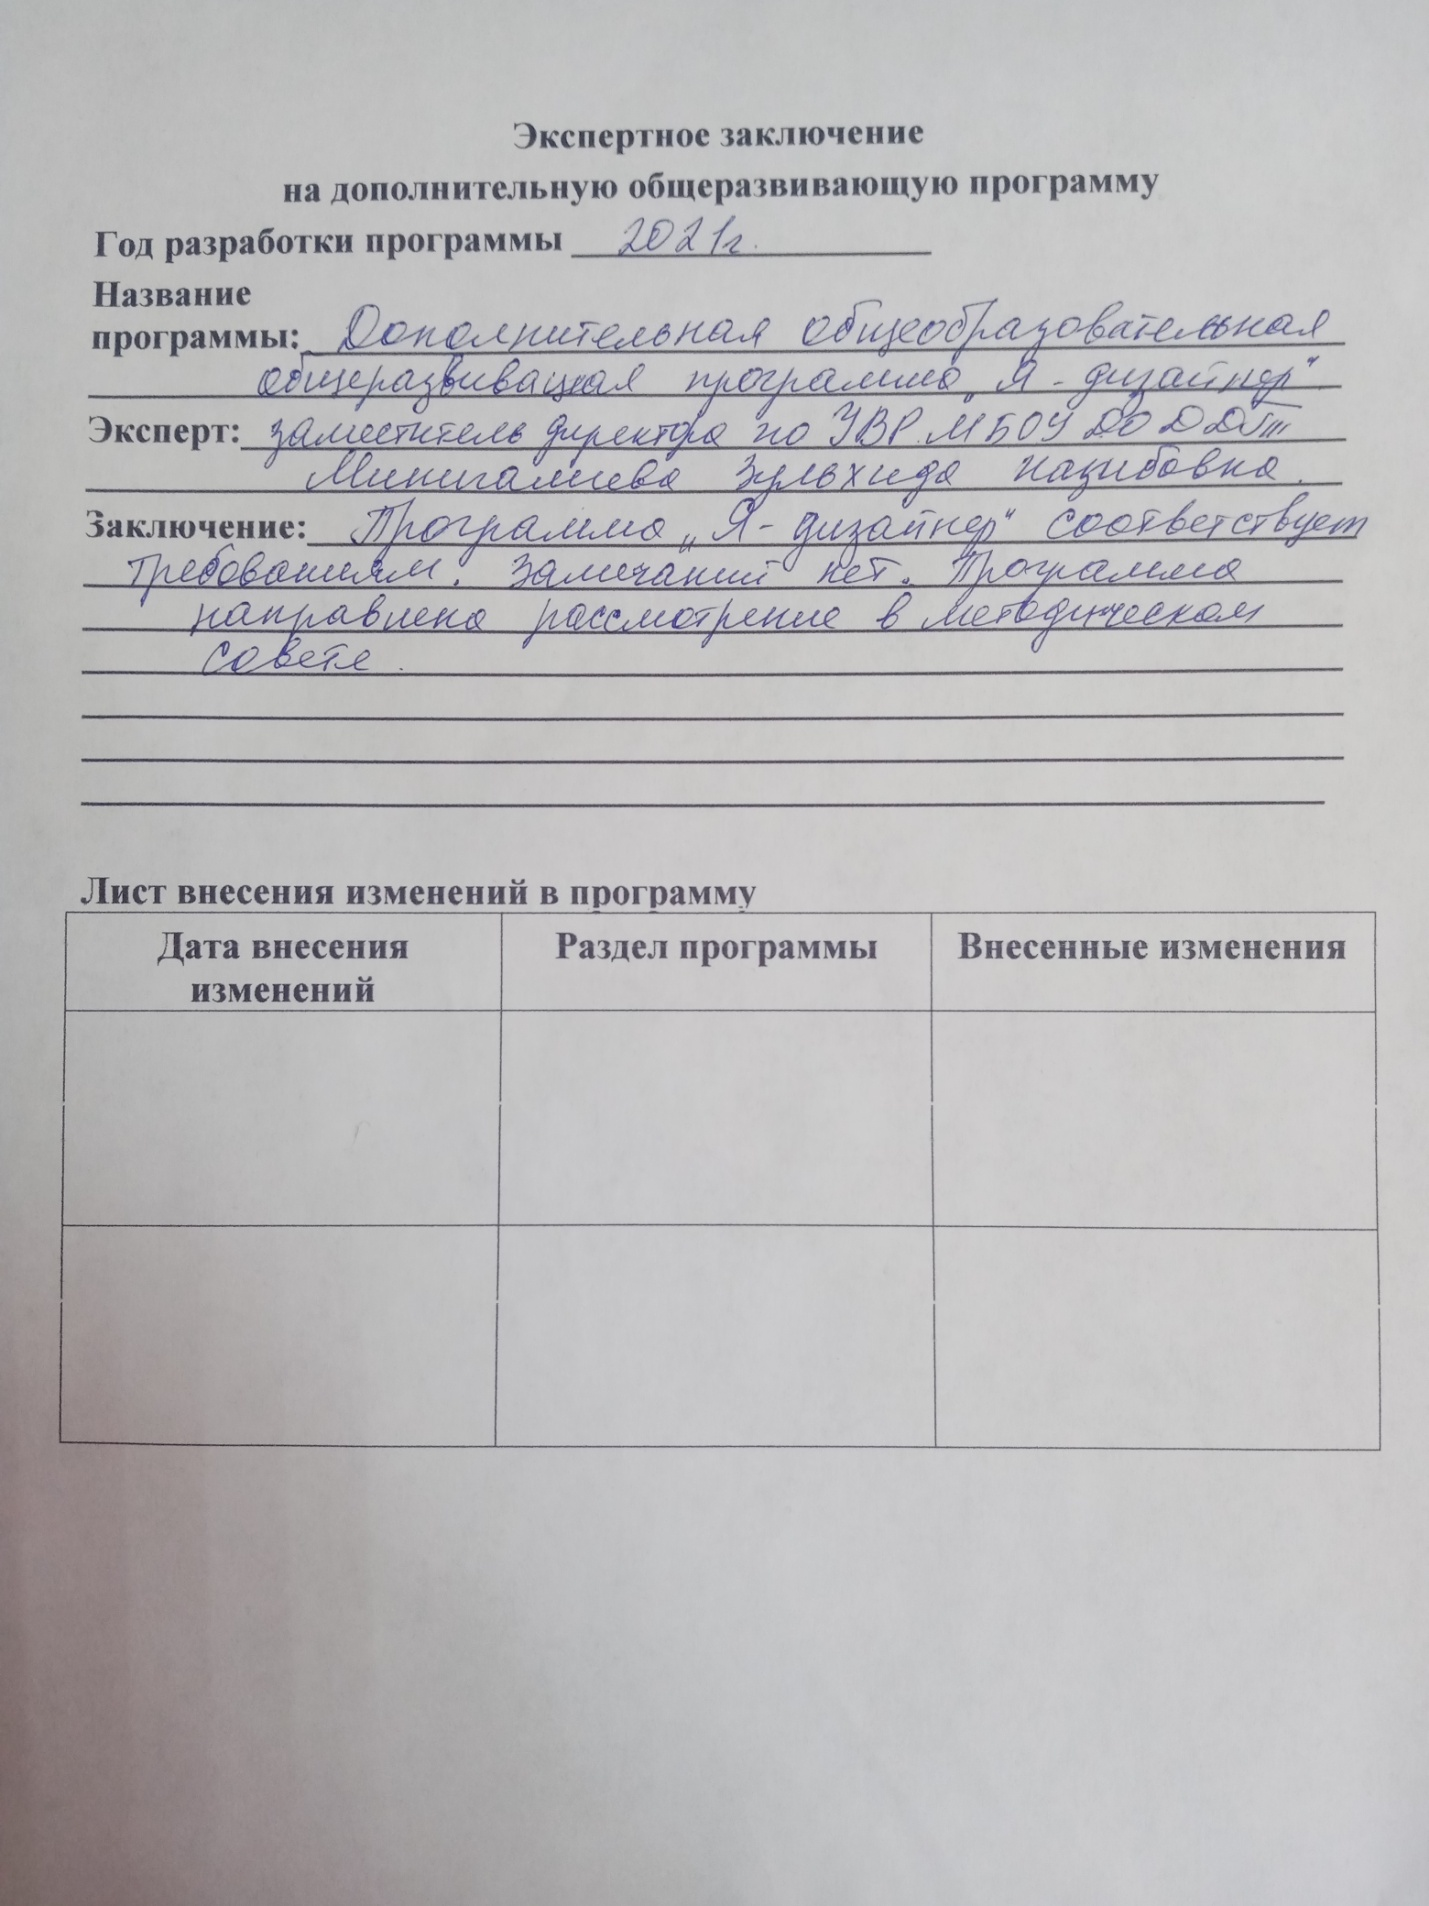 Экспертное заключение
на дополнительную общеразвивающую программу
Год разработки программы 2021г.
Название
программы: Дополнительная общеобразовательная
общеразвивающая программа „Я - дизайнер“
Эксперт: заместитель директора по УВР МБОУ ДО ДДТ
Минигалиева Зульхида Назибовна.
Заключение: Программа „Я - дизайнер“ соответствует
требованиям. Замечаний нет. Программа
направлена рассмотрение в методическом
совете.
Лист внесения изменений в программу
Дата внесения Раздел программы Внесенные изменения
изменений